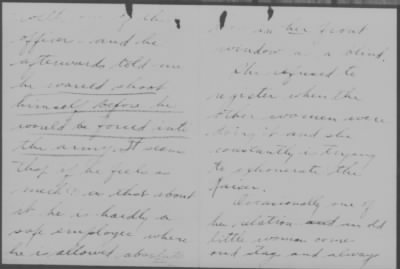 officer and he
afterwards told me
he would shoot
himself before he
would be forced into
the army. It seems
that if he feels as
much in that about
it he is hardly a
safe employee where
he is allowed
in her front
window as a blind.
She refused to
register when the
other women were
doing it and she
constantly is trying
to exhonerate the
Kaiser.
Occasionally one of
her relation and an old
little woman come
and stay and always